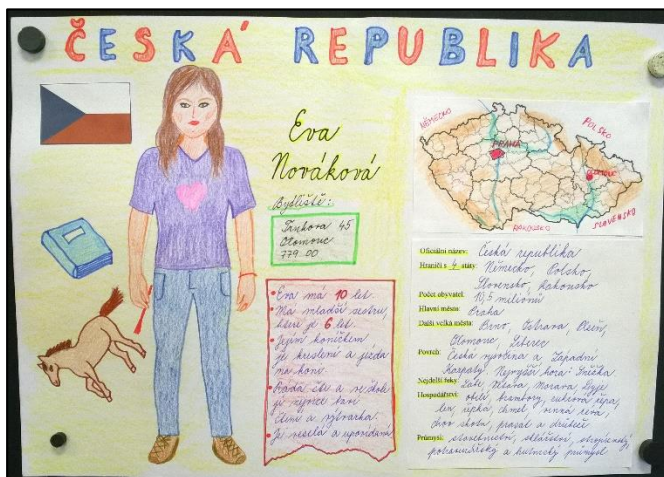 ČESKÁ REPUBLIKA
Eva
Nováková
Bydliště:
45
Olomouc
779 00
• Eva má 10 let.
• Má mladší sestru,
které je 6 let.
• Jejím koníčkem
je kreslení a jízda
na koni.
• Ráda čte a ve škole
ji nejvíce baví
čtení a výtvarka.
• Je veselá a upovídaná
NĚMECKO
POLSKO
PRAHA
OLOMOUC
RAKOUSKO
SLOVENSKO
Oficiální název: Česká republika
Hraničí s 4 státy: Německo, Polsko
Slovensko, Rakousko
Počet obyvatel: 10,5 milionů
Hlavní město: Praha
Další velká města: Brno, Ostrava, Plzeň,
Olomouc, Liberec
Povrch: Česká vysočina a Západní
Karpaty. Nejvyšší hora: Sněžka
Nejdelší řeky: Labe, Vltava, Morava, Dyje
Hospodářství: obilí, brambory, cukrová řepa,
len, řepka, chmel, vinná réva,
chov skotu, prasat a drůbeže
Průmysl: sklářský, strojírenský,
potravinářský a hutnický průmysl